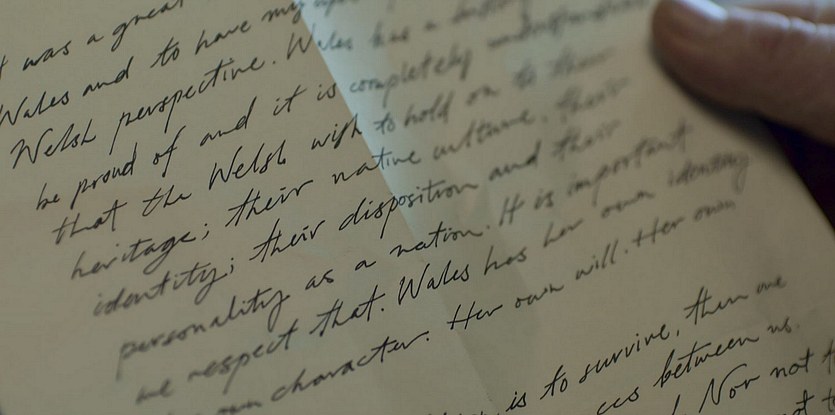 was a great
Wales and to have my
Welsh perspective. Wales has a
be proud of and it is completely
that the Welsh wish to hold on to their
heritage; their native culture, their
identity; their disposition and their
personality as a nation. It is important
we respect that. Wales has her own identity
own character. Her own will. Her own
is to survive, then we
between us.
Nor not